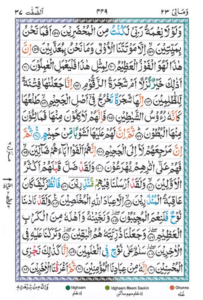 وَمَالِىَ ٢٣ ٤٤٩ الصّٰٓفّٰت ٣٧
وَلَوْلَا نِعْمَةُ رَبِّىْ لَكُنْتُ مِنَ الْمُحْضَرِيْنَ اَفَمَا نَحْنُ
بِمَيِّتِيْنَ اِلَّا مَوْتَتَنَا الْاُوْلٰى وَمَا نَحْنُ بِمُعَذَّبِيْنَ اِنَّ
هٰذَا لَهُوَ الْفَوْزُ الْعَظِيْمُ لِمِثْلِ هٰذَا فَلْيَعْمَلِ الْعٰمِلُوْنَ
اَذٰلِكَ خَيْرٌ نُّزُلًا اَمْ شَجَرَةُ الزَّقُّوْمِ اِنَّا جَعَلْنٰهَا فِتْنَةً
لِّلظّٰلِمِيْنَ اِنَّهَا شَجَرَةٌ تَخْرُجُ فِىْ اَصْلِ الْجَحِيْمِ طَلْعُهَا
كَاَنَّهٗ رُءُوْسُ الشَّيٰطِيْنِ فَاِنَّهُمْ لَاٰكِلُوْنَ مِنْهَا فَمَالِـُٔوْنَ
مِنْهَا الْبُطُوْنَ ثُمَّ اِنَّ لَهُمْ عَلَيْهَا لَشَوْبًا مِّنْ حَمِيْمٍ ثُمَّ
اِنَّ مَرْجِعَهُمْ لَاِلَى الْجَحِيْمِ اِنَّهُمْ اَلْفَوْا اٰبَآءَهُمْ ضَآلِّيْنَ
فَهُمْ عَلٰٓى اٰثٰرِهِمْ يُهْرَعُوْنَ وَلَقَدْ ضَلَّ قَبْلَهُمْ اَكْثَرُ
الْاَوَّلِيْنَ وَلَقَدْ اَرْسَلْنَا فِيْهِمْ مُّنْذِرِيْنَ فَانْظُرْ كَيْفَ كَانَ
عَاقِبَةُ الْمُنْذَرِيْنَ اِلَّا عِبَادَ اللّٰهِ الْمُخْلَصِيْنَ وَلَقَدْ نَادٰىنَا
نُوْحٌ فَلَنِعْمَ الْمُجِيْبُوْنَ وَنَجَّيْنٰهُ وَاَهْلَهٗ مِنَ الْكَرْبِ
الْعَظِيْمِ وَجَعَلْنَا ذُرِّيَّتَهٗ هُمُ الْبٰقِيْنَ وَتَرَكْنَا عَلَيْهِ فِى
الْاٰخِرِيْنَ سَلٰمٌ عَلٰى نُوْحٍ فِى الْعٰلَمِيْنَ اِنَّا كَذٰلِكَ نَجْزِى
الْمُحْسِنِيْنَ اِنَّهٗ مِنْ عِبَادِنَا الْمُؤْمِنِيْنَ
Idghaam Idghaam Meem Saakin Ghunna